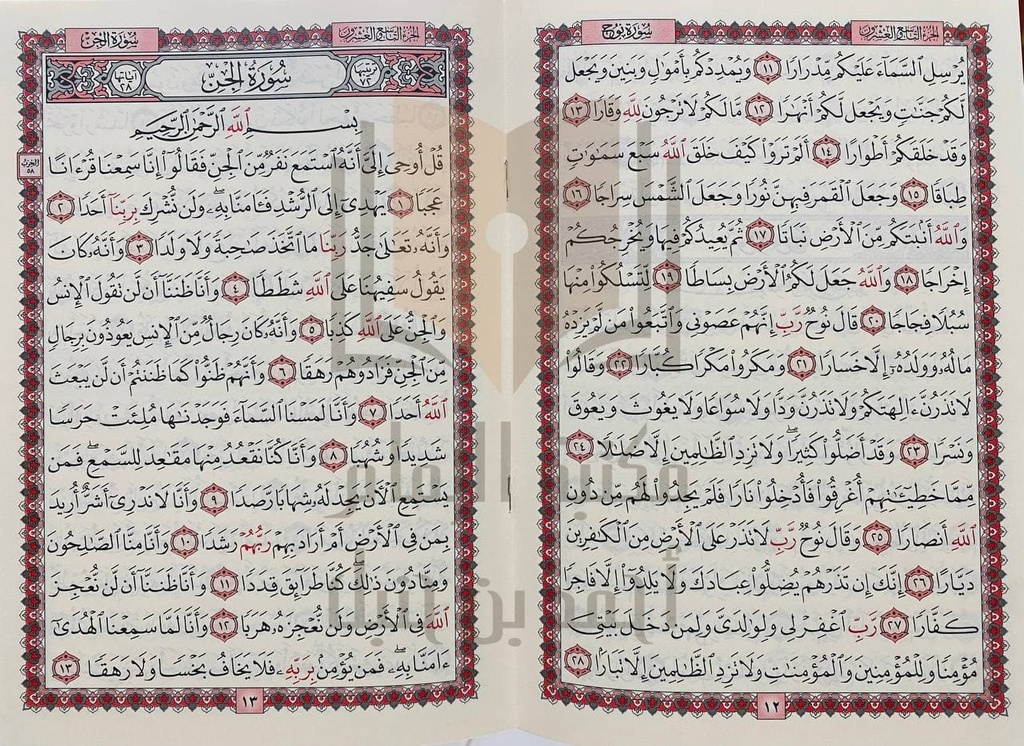 الجزء التاسع والعشرون
سورة نوح
يُرْسِلِ ٱلسَّمَآءَ عَلَيْكُم مِّدْرَارًا ١١ وَيُمْدِدْكُم بِأَمْوَٰلٍ وَبَنِينَ وَيَجْعَل
لَّكُمْ جَنَّٰتٍ وَيَجْعَل لَّكُمْ أَنْهَٰرًا ١٢ مَّا لَكُمْ لَا تَرْجُونَ لِلَّهِ وَقَارًا ١٣
وَقَدْ خَلَقَكُمْ أَطْوَارًا ١٤ أَلَمْ تَرَوْا۟ كَيْفَ خَلَقَ ٱللَّهُ سَبْعَ سَمَٰوَٰتٍ
طِبَاقًا ١٥ وَجَعَلَ ٱلْقَمَرَ فِيهِنَّ نُورًا وَجَعَلَ ٱلشَّمْسَ سِرَاجًا ١٦
وَٱللَّهُ أَنۢبَتَكُم مِّنَ ٱلْأَرْضِ نَبَاتًا ١٧ ثُمَّ يُعِيدُكُمْ فِيهَا وَيُخْرِجُكُمْ
إِخْرَاجًا ١٨ وَٱللَّهُ جَعَلَ لَكُمُ ٱلْأَرْضَ بِسَاطًا ١٩ لِّتَسْلُكُوا۟ مِنْهَا
سُبُلًا فِجَاجًا ٢٠ قَالَ نُوحٌ رَّبِّ إِنَّهُمْ عَصَوْنِى وَٱتَّبَعُوا۟ مَن لَّمْ يَزِدْهُ
مَالُهُۥ وَوَلَدُهُۥٓ إِلَّا خَسَارًا ٢١ وَمَكَرُوا۟ مَكْرًا كُبَّارًا ٢٢ وَقَالُوا۟
لَا تَذَرُنَّ ءَالِهَتَكُمْ وَلَا تَذَرُنَّ وَدًّا وَلَا سُوَاعًا وَلَا يَغُوثَ وَيَعُوقَ
وَنَسْرًا ٢٣ وَقَدْ أَضَلُّوا۟ كَثِيرًا ۖ وَلَا تَزِدِ ٱلظَّٰلِمِينَ إِلَّا ضَلَٰلًا ٢٤
مِّمَّا خَطِيٓـَٰٔتِهِمْ أُغْرِقُوا۟ فَأُدْخِلُوا۟ نَارًا فَلَمْ يَجِدُوا۟ لَهُم مِّن دُونِ
ٱللَّهِ أَنصَارًا ٢٥ وَقَالَ نُوحٌ رَّبِّ لَا تَذَرْ عَلَى ٱلْأَرْضِ مِنَ ٱلْكَٰفِرِينَ
دَيَّارًا ٢٦ إِنَّكَ إِن تَذَرْهُمْ يُضِلُّوا۟ عِبَادَكَ وَلَا يَلِدُوٓا۟ إِلَّا فَاجِرًا
كَفَّارًا ٢٧ رَّبِّ ٱغْفِرْ لِى وَلِوَٰلِدَىَّ وَلِمَن دَخَلَ بَيْتِىَ
مُؤْمِنًا وَلِلْمُؤْمِنِينَ وَٱلْمُؤْمِنَٰتِ وَلَا تَزِدِ ٱلظَّٰلِمِينَ إِلَّا تَبَارًۢا ٢٨
١٢
الجزء التاسع والعشرون
سورة الجن
سُورَةُ الجِنِّ
آياتها ٢٨
الحزب ٥٨
بِسْمِ ٱللَّهِ ٱلرَّحْمَٰنِ ٱلرَّحِيمِ
قُلْ أُوحِىَ إِلَىَّ أَنَّهُ ٱسْتَمَعَ نَفَرٌ مِّنَ ٱلْجِنِّ فَقَالُوٓا۟ إِنَّا سَمِعْنَا قُرْءَانًا
عَجَبًا ١ يَهْدِىٓ إِلَى ٱلرُّشْدِ فَـَٔامَنَّا بِهِۦ ۖ وَلَن نُّشْرِكَ بِرَبِّنَآ أَحَدًا ٢
وَأَنَّهُۥ تَعَٰلَىٰ جَدُّ رَبِّنَا مَا ٱتَّخَذَ صَٰحِبَةً وَلَا وَلَدًا ٣ وَأَنَّهُۥ كَانَ
يَقُولُ سَفِيهُنَا عَلَى ٱللَّهِ شَطَطًا ٤ وَأَنَّا ظَنَنَّآ أَن لَّن تَقُولَ ٱلْإِنسُ
وَٱلْجِنُّ عَلَى ٱللَّهِ كَذِبًا ٥ وَأَنَّهُۥ كَانَ رِجَالٌ مِّنَ ٱلْإِنسِ يَعُوذُونَ بِرِجَالٍ
مِّنَ ٱلْجِنِّ فَزَادُوهُمْ رَهَقًا ٦ وَأَنَّهُمْ ظَنُّوا۟ كَمَا ظَنَنتُمْ أَن لَّن يَبْعَثَ
ٱللَّهُ أَحَدًا ٧ وَأَنَّا لَمَسْنَا ٱلسَّمَآءَ فَوَجَدْنَٰهَا مُلِئَتْ حَرَسًا
شَدِيدًا وَشُهُبًا ٨ وَأَنَّا كُنَّا نَقْعُدُ مِنْهَا مَقَٰعِدَ لِلسَّمْعِ ۖ فَمَن
يَسْتَمِعِ ٱلْـَٔانَ يَجِدْ لَهُۥ شِهَابًا رَّصَدًا ٩ وَأَنَّا لَا نَدْرِىٓ أَشَرٌّ أُرِيدَ
بِمَن فِى ٱلْأَرْضِ أَمْ أَرَادَ بِهِمْ رَبُّهُمْ رَشَدًا ١٠ وَأَنَّا مِنَّا ٱلصَّٰلِحُونَ
وَمِنَّا دُونَ ذَٰلِكَ ۖ كُنَّا طَرَآئِقَ قِدَدًا ١١ وَأَنَّا ظَنَنَّآ أَن لَّن نُّعْجِزَ
ٱللَّهَ فِى ٱلْأَرْضِ وَلَن نُّعْجِزَهُۥ هَرَبًا ١٢ وَأَنَّا لَمَّا سَمِعْنَا ٱلْهُدَىٰٓ
ءَامَنَّا بِهِۦ ۖ فَمَن يُؤْمِنۢ بِرَبِّهِۦ فَلَا يَخَافُ بَخْسًا وَلَا رَهَقًا ١٣
١٣